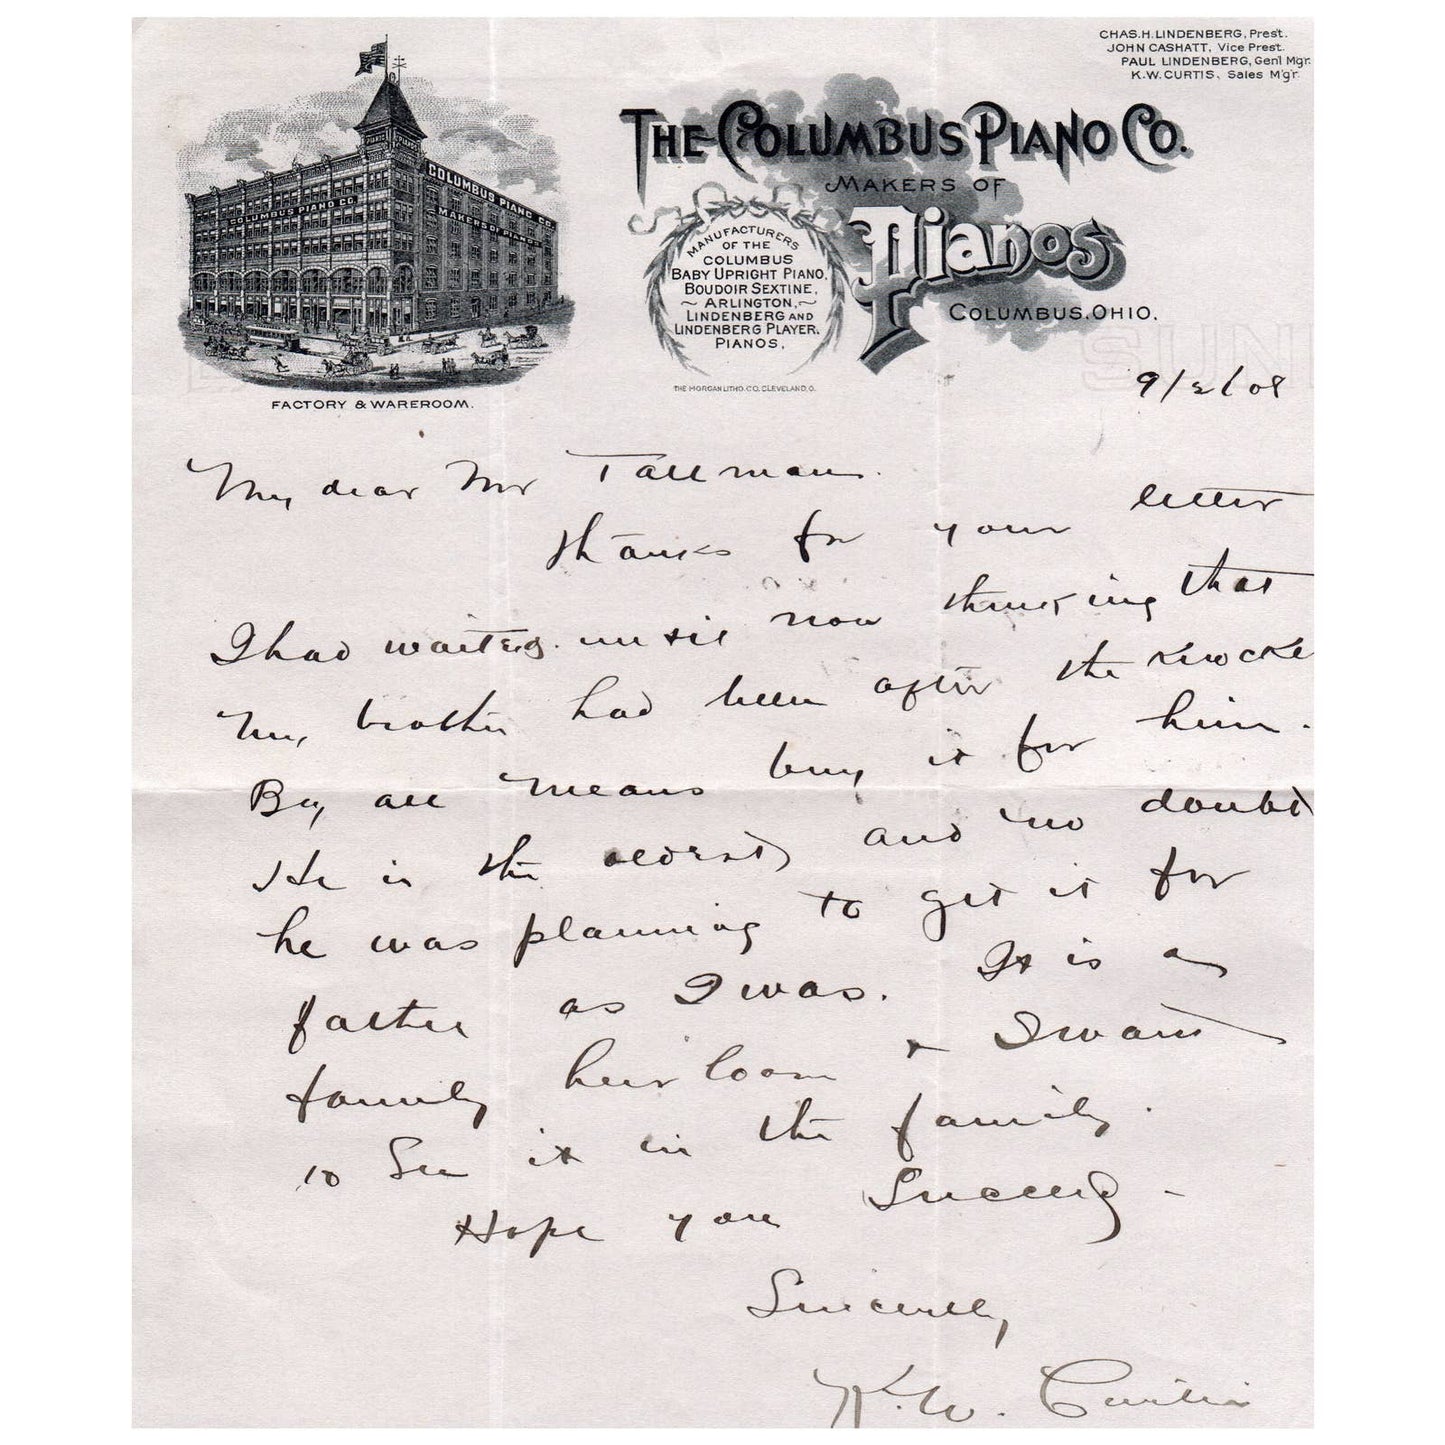 CHAS. H. LINDENBERG, Prest.
JOHN CASHATT, Vice Prest.
PAUL LINDENBERG, Gen'l Mgr.
K. W. CURTIS, Sales M'g'r.
THE COLUMBUS PIANO CO.
MAKERS OF
Pianos
COLUMBUS, OHIO.
MANUFACTURERS
OF THE
COLUMBUS
BABY UPRIGHT PIANO,
BOUDOIR SEXTINE,
~ ARLINGTON, ~
LINDENBERG AND
LINDENBERG PLAYER.
PIANOS,
THE MORGAN LITHO. CO. CLEVELAND, O.
COLUMBUS PIANO CO.
COLUMBUS PIANO CO.
MAKERS OF PIANOS
FACTORY & WAREROOM.
9/2/08
My dear Mr Tallman.
thanks for your letter
I had waited until now thinking that
my brother had been after the
By all means buy it for him.
He is the oldest and no doubt
he was planning to get it for
father as I was. It is a
family heirloom + I want
to see it in the family.
Hope you succeed -
Sincerely
K. W. Curtis